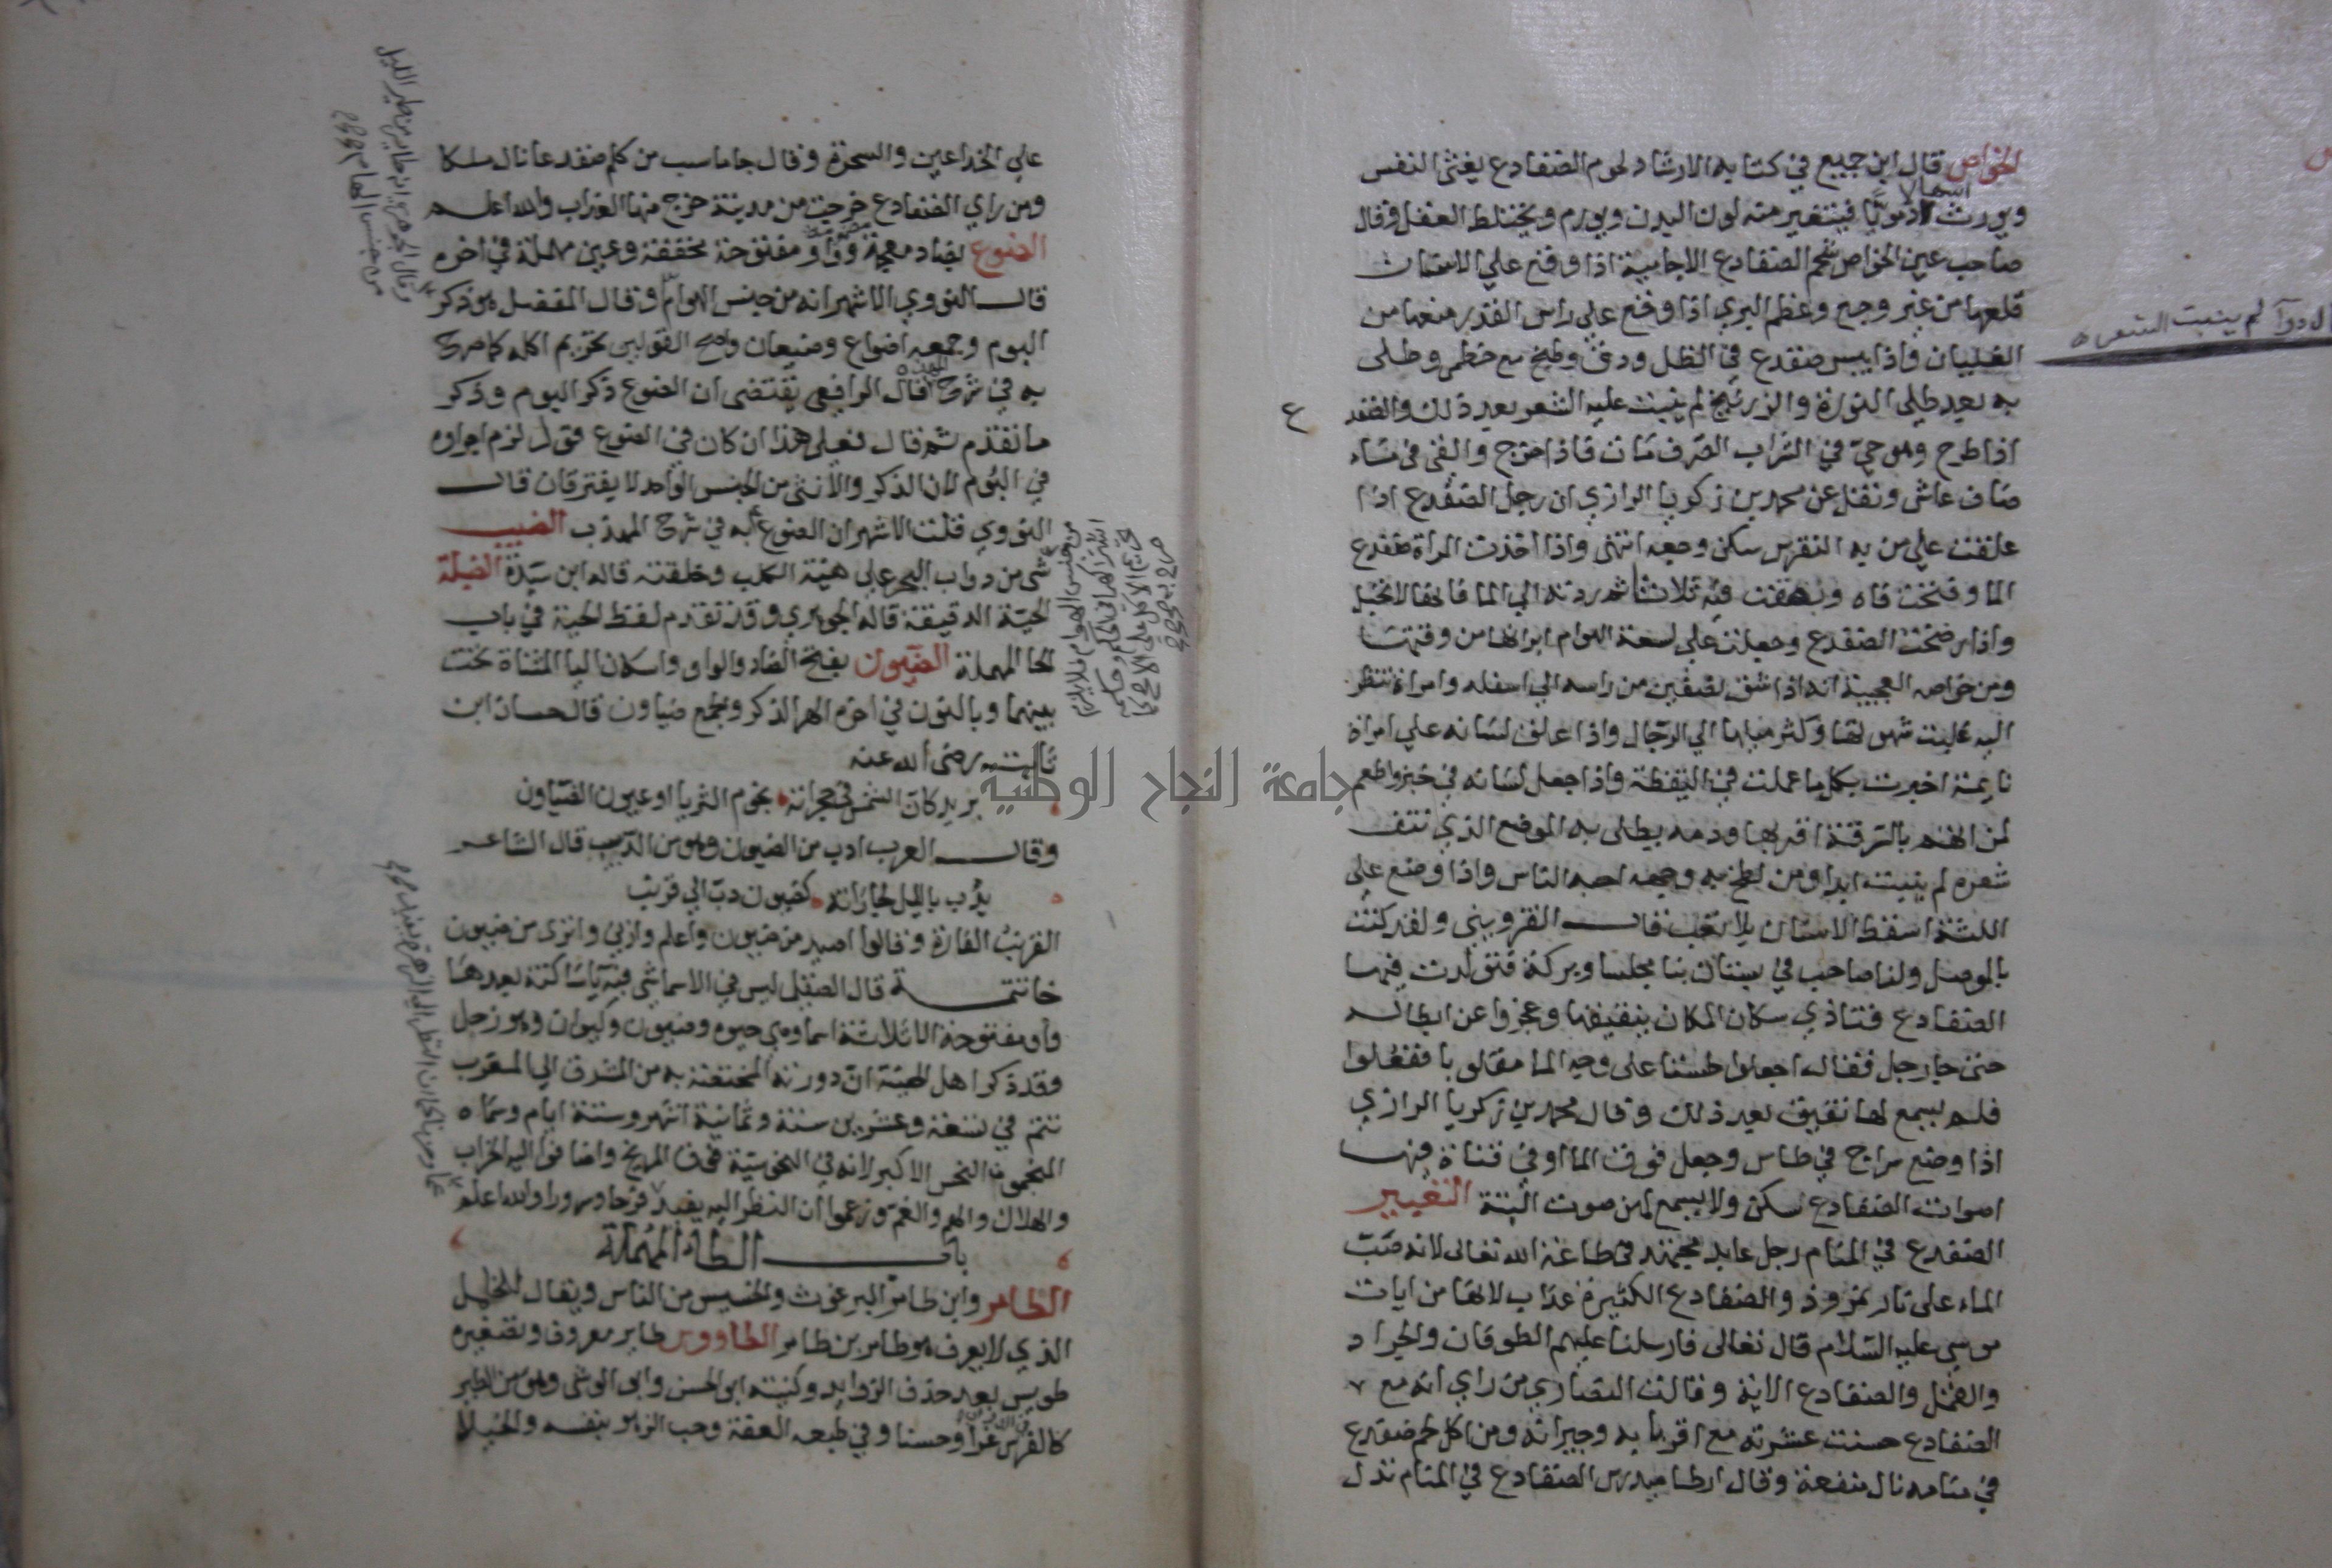 الخواص قال ابن جميع في كتابه الارشاد لحوم الضفادع يغثى النفس
ويورث اسهالا دمويا فيتغير منه لون البدن ويورم ويختلط العقل وقال
صاحب عين الخواص شحم الضفادع الاجامية اذا وضع علي الاسنان
قلعها من غير وجع وعظم البري اذا وضع علي راس القدر منعها من
الغليان واذا يبس ضفدع في الظل ودق وطبخ مع خطمى وطلى
به بعد طلى النورة والزرنيخ لم ينبت عليه الشعر بعد ذلك والضفد
ع
اذا طرح وهو حي في الشراب الصرف مات فاذا اخرج والقى فى ماء
صاف عاش ونقل عن محمد بن زكريا الرازي ان رجل الضفدع اذا
علقت علي من به النقرس سكن وجعه انتهى واذا اخذت المراة ضفدع
الما وفتحت فاه وبصقت فيه ثلاثا ثم ردته الي الما فانها لا تحبل
واذا رضخت الضفدع وجعلت علي لسعة الهوام ابراتها من وقتها
ومن خواصه العجيبة انه اذا شق نصفين من راسه الي اسفله وامراة تنظر
اليه غلبت شهوتها وكثر ميلها الي الرجال واذا علق لسانه علي امراة
نايمة اخبرت بكل ما عملت في اليقظة واذا جعل لسانه في خبز واطعم
لمن اتهم بالسرقة اقر بها ودمه يطلى به الموضع الذي نتف
شعره لم ينبت ابدا ومن لطخ به وجهه احبه الناس واذا وضع علي
اللثة اسقط الاسنان بلا تعب قال القزويني ولقد كنت
بالموصل ولنا صاحب في بستان بنا مجلسا وبركة فتولدت فيها
الضفادع فتاذي سكان المكان بنقيقها وعجزوا عن ابطاله
حتى جا رجل فقال اجعلوا طستا على وجه الما مقلوبا ففعلوا
فلم يسمع لها نقيق بعد ذلك وقال محمد بن زكريا الرازي
اذا وضع سراج في طاس وجعل فوق الما او في قناة فيها
اصوات الضفادع سكن ولا يسمع لهن صوت البتة التعبير
الضفدع في المنام رجل عابد مجتهد في طاعة الله تعالى لانه صب
الماء على نار نمروذ والضفادع الكثيرة عذاب لانها من ايات
موسي عليه السلام قال تعالى فارسلنا عليهم الطوفان والجراد
والقمل والضفادع الاية وقالت النصاري من راي انه مع
الضفادع حسنت عشرته مع اقربايه وجيرانه ومن اكل لحم ضفدع
في منامه نال منفعة وقال ارطاميدورس الضفادع في المنام تدل
الدوا لم ينبت الشعر
علي الخداعين والسحرة وقال جاماسب من كلم ضفدعا نال ملكا
ومن راي الضفادع خرجت من مدينة خرج منها العذاب والله اعلم
الضوع بضاد معجمة وواو مفتوحة مخففة وعين مهملة في اخره
قال النووي الاشهر انه من جنس الهوام وقال المفضل هو ذكر
البوم وجمعه اضواع وضيعان واصح القولين تحريم اكله كما صرح
به في شرح المهذب قال الرافعي يقتضى ان الضوع ذكر البوم وذكر
ما تقدم ثم قال فعلى هذا ان كان في الضوع قول لزم اجراوه
في البوم لان الذكر والانثى من الجنس الواحد لا يفترقان قال
النووي قلت الاشهر ان الضوع به في شرح المهذب الضيب
شى من دواب البحر علي هيئة الكلب وخلقته قاله ابن سيدة الضيلة
الحية الدقيقة قاله الجوهري وقد تقدم لفظ الحية في باب
الحا المهملة الضيون بفتح الضاد والواو واسكان اليا المثناة تحت
بينهما وبالنون في اخره الهر الذكر والجمع ضياون قال حسان ابن
ثابت رضى الله عنه
يريد كان الشمس في حجراته نجوم الثريا او عيون الضياون
وقال العرب ادب من الضيون وهو من الدبيب قال الشاعر
يدب بالليل لجاراته كضيون دب الي قرنب
القرنب الفارة وقالوا اصيد من ضيون واعلم وازني وانزى من ضيون
خاتمة قال الصقلي ليس في الاسما شي فيه ياساكنة بعدها
واو مفتوحة الا ثلاثة اسما وهي حيوه وضيون وكيوان وهو زحل
وقد ذكر اهل الهيئة ان دورته المختصة به من المشرق الي المغرب
تتم في تسعة وعشرين سنة وثمانية اشهر وستة ايام وسماه
المنجمون النحس الاكبر لانه في النحوسية فوق المريخ واضافوا اليه الخراب
والهلاك والهم والغم وزعموا ان النظر اليه يفيد فرحا وسرورا والله اعلم
باب الطاء المهملة
الطامر وابن طامر البرغوث والخسيس من الناس ويقال للمجهول
الذي لا يعرف هو طامر بن طامر الطاووس طاير معروف وتصغيره
طويس بعد حذف الزوايد وكنيته ابو الحسن وابو الوشي وهو من الطير
كالفرس عزا وحسنا وفي طبعه العفة وحب الزهو بنفسه والخيلا
وقال الجوهري انه طاير من طير الليل
من جنس الهام
من جنس الهوام فلا يلزم
اشتراكهما في الحكم
جامعة النجاح الوطنية